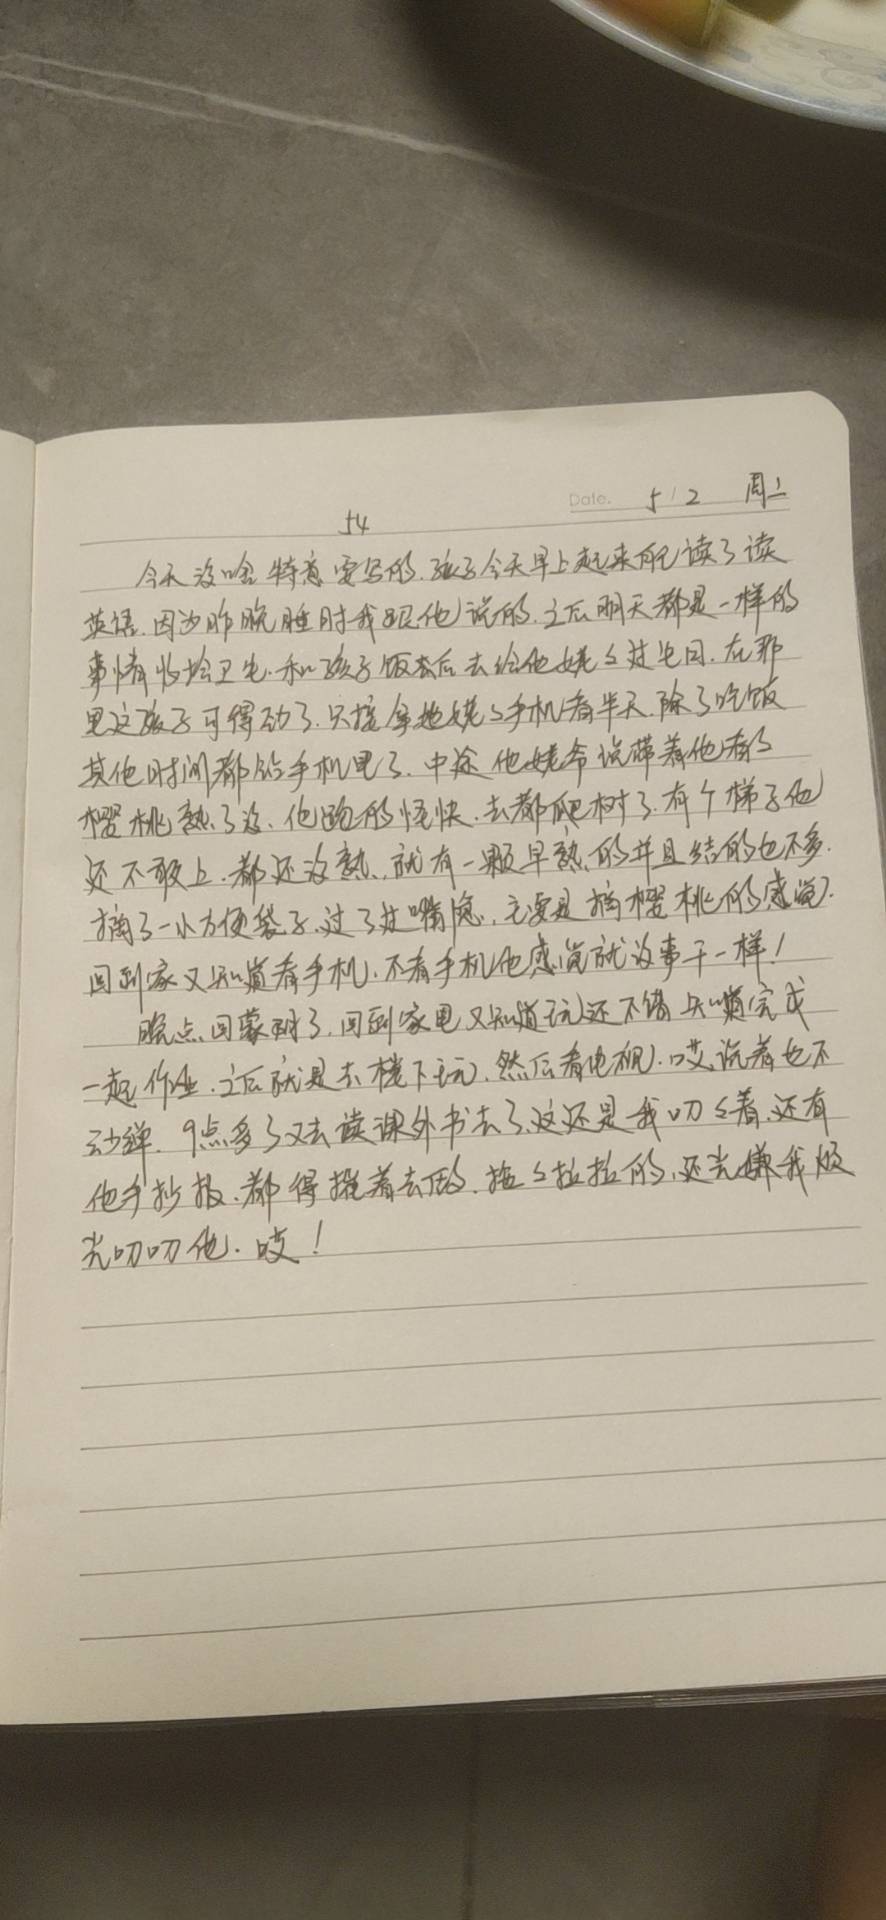 Date. 5/2 周二
54
今天没啥特意要写的.孩子今天早上起来自己读了读
英语.因为昨晚睡时我跟他说的.之后明天都是一样的
事情收拾卫生.和孩子饭去后去给他姥々过生日.在那
里这孩子可得劲了.只接拿她姥々手机看半天.除了吃饭
其他时间都给手机里了.中途他姥爷说带着他看的
樱桃熟了没.他跑的怪快.去都爬树了.有个梯子他
还不敢上.都还没熟.就有一颗早熟的并且结的也不多.
摘了一小方便袋子.过了过嘴瘾.主要是摘樱桃的感觉.
回到家又知道看手机.不看手机他感觉就没事干一样!
晚点回蒙阴了.回到家里又知道玩还不错知道完成
一起作业.之后就是去楼下玩.然后看电视.哎,说着也不
动弹.9点多了又去读课外书去了.这还是我叨々着.还有
他手抄报.都得推着去的.拖々拉拉的.还光嫌我烦
光叨叨他.哎!